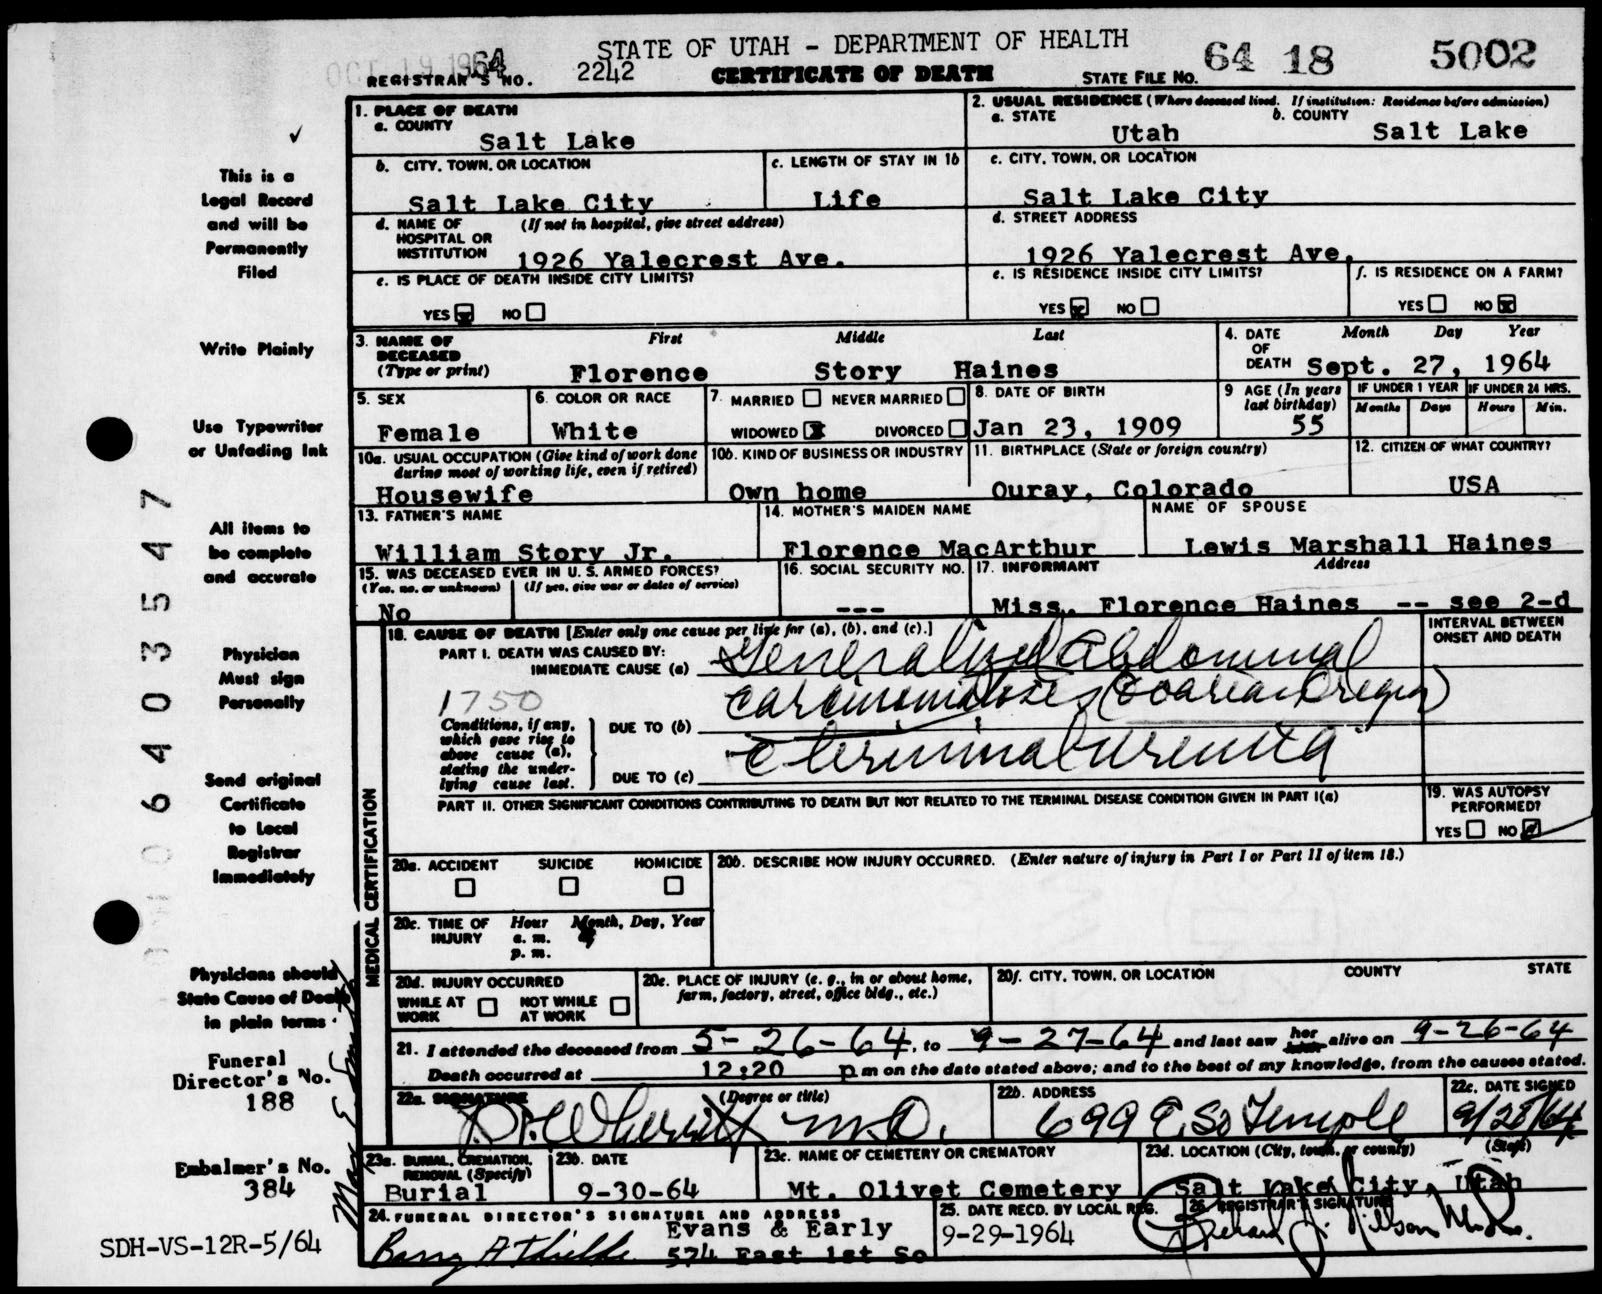 STATE OF UTAH - DEPARTMENT OF HEALTH
OCT 19 1964
REGISTRAR'S NO. 2242 CERTIFICATE OF DEATH STATE FILE NO. 64 18 5002
1. PLACE OF DEATH
a. COUNTY
Salt Lake
2. USUAL RESIDENCE (Where deceased lived. If institution: Residence before admission)
a. STATE b. COUNTY
Utah Salt Lake
b. CITY, TOWN, OR LOCATION
Salt Lake City
c. LENGTH OF STAY IN 1b
Life
c. CITY, TOWN, OR LOCATION
Salt Lake City
d. NAME OF HOSPITAL OR INSTITUTION (If not in hospital, give street address)
1926 Yalecrest Ave.
d. STREET ADDRESS
1926 Yalecrest Ave.
e. IS PLACE OF DEATH INSIDE CITY LIMITS?
YES ☒ NO ☐
e. IS RESIDENCE INSIDE CITY LIMITS?
YES ☒ NO ☐
f. IS RESIDENCE ON A FARM?
YES ☐ NO ☒
3. NAME OF DECEASED (Type or print)
First Middle Last
Florence Story Haines
4. DATE OF DEATH Month Day Year
Sept. 27, 1964
5. SEX
Female
6. COLOR OR RACE
White
7. MARRIED ☐ NEVER MARRIED ☐
WIDOWED ☒ DIVORCED ☐
8. DATE OF BIRTH
Jan 23, 1909
9 AGE (In years last birthday)
55
IF UNDER 1 YEAR
Months Days
IF UNDER 24 HRS.
Hours Min.
10a. USUAL OCCUPATION (Give kind of work done during most of working life, even if retired)
Housewife
10b. KIND OF BUSINESS OR INDUSTRY
Own home
11. BIRTHPLACE (State or foreign country)
Ouray, Colorado
12. CITIZEN OF WHAT COUNTRY?
USA
13. FATHER'S NAME
William Story Jr.
14. MOTHER'S MAIDEN NAME
Florence MacArthur
NAME OF SPOUSE
Lewis Marshall Haines
15. WAS DECEASED EVER IN U. S. ARMED FORCES?
(Yes, no, or unknown) (If yes, give war or dates of service)
No
16. SOCIAL SECURITY NO.
---
17. INFORMANT Address
Miss. Florence Haines -- see 2-d
18. CAUSE OF DEATH [Enter only one cause per line for (a), (b), and (c).]
INTERVAL BETWEEN ONSET AND DEATH
PART I. DEATH WAS CAUSED BY:
IMMEDIATE CAUSE (a) Generalized Abdominal
1750
Conditions, if any, which gave rise to above cause (a), stating the underlying cause last.
carcinomatosis (Ovarian Origin)
DUE TO (b)
c terminal uremia
DUE TO (c)
PART II. OTHER SIGNIFICANT CONDITIONS CONTRIBUTING TO DEATH BUT NOT RELATED TO THE TERMINAL DISEASE CONDITION GIVEN IN PART I(a)
19. WAS AUTOPSY PERFORMED?
YES ☐ NO ☑
MEDICAL CERTIFICATION
20a. ACCIDENT SUICIDE HOMICIDE
☐ ☐ ☐
20b. DESCRIBE HOW INJURY OCCURRED. (Enter nature of injury in Part I or Part II of item 18.)
20c. TIME OF INJURY Hour Month, Day, Year
a. m.
p. m.
20d. INJURY OCCURRED
WHILE AT WORK ☐ NOT WHILE AT WORK ☐
20e. PLACE OF INJURY (e. g., in or about home, farm, factory, street, office bldg., etc.)
20f. CITY, TOWN, OR LOCATION COUNTY STATE
21. I attended the deceased from 5-26-64, to 9-27-64 and last saw her alive on 9-26-64
Death occurred at 12:20 p m on the date stated above; and to the best of my knowledge, from the causes stated.
22a. SIGNATURE (Degree or title)
M.D.
22b. ADDRESS
699 E. So Temple
22c. DATE SIGNED
9/28/64
23a. BURIAL, CREMATION, REMOVAL (Specify)
Burial
23b. DATE
9-30-64
23c. NAME OF CEMETERY OR CREMATORY
Mt. Olivet Cemetery
23d. LOCATION (City, town, or county) (State)
Salt Lake City, Utah
24. FUNERAL DIRECTOR'S SIGNATURE AND ADDRESS
Evans & Early
574 East 1st So
25. DATE RECD. BY LOCAL REG.
9-29-1964
26 REGISTRAR'S SIGNATURE
This is a
Legal Record
and will be
Permanently
Filed
Write Plainly
Use Typewriter
or Unfading Ink
All items to
be complete
and accurate
Physician
Must sign
Personally
Send original
Certificate
to Local
Registrar
Immediately
Physicians should
State Cause of Death
in plain terms
Funeral
Director's No.
188
Embalmer's No.
384
SDH-VS-12R-5/64